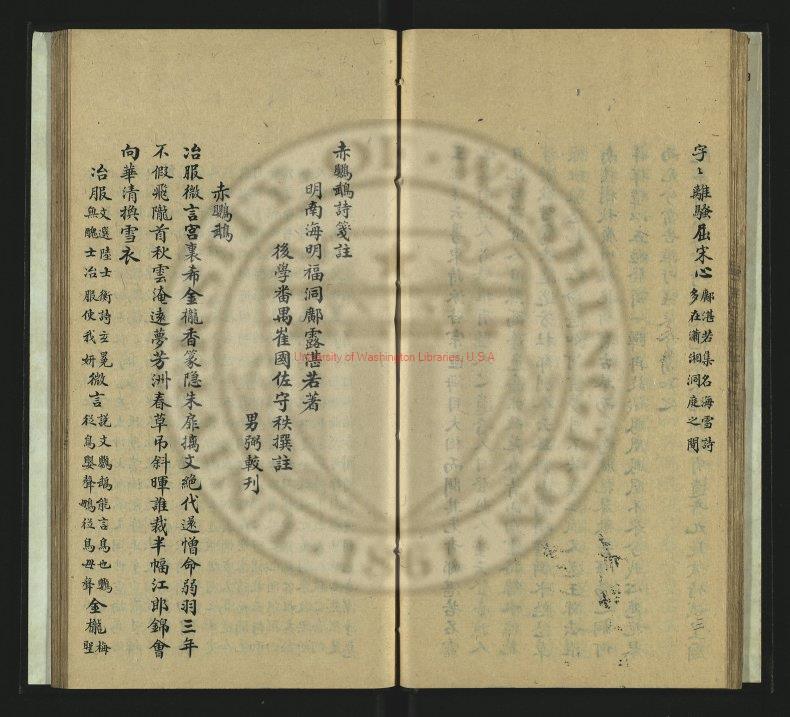 字〻離騷屈宋心鄺湛若集名海雪詩
多在瀟湘洞庭之間
赤鸚鵡詩箋註
明南海明福洞鄺露湛若著
後學番禺崔國佐守秩撰註
男弼較刊
赤鸚鵡
冶服微言宮裏希金櫳香篆隐朱扉摛文絶代還憎命弱羽三年
不假飛隴首秋雲淹遠夢芳洲春草弔斜暉誰裁半幅江郎錦會
向華清換雪衣
冶服文選陸士衡詩玄冕
無醜士冶服使我妍
微言說文鸚鵡能言鳥也鸚
從鳥嬰聲鵡從鳥母聲
金櫳梅
聖
University of Washington Libraries, U.S.A